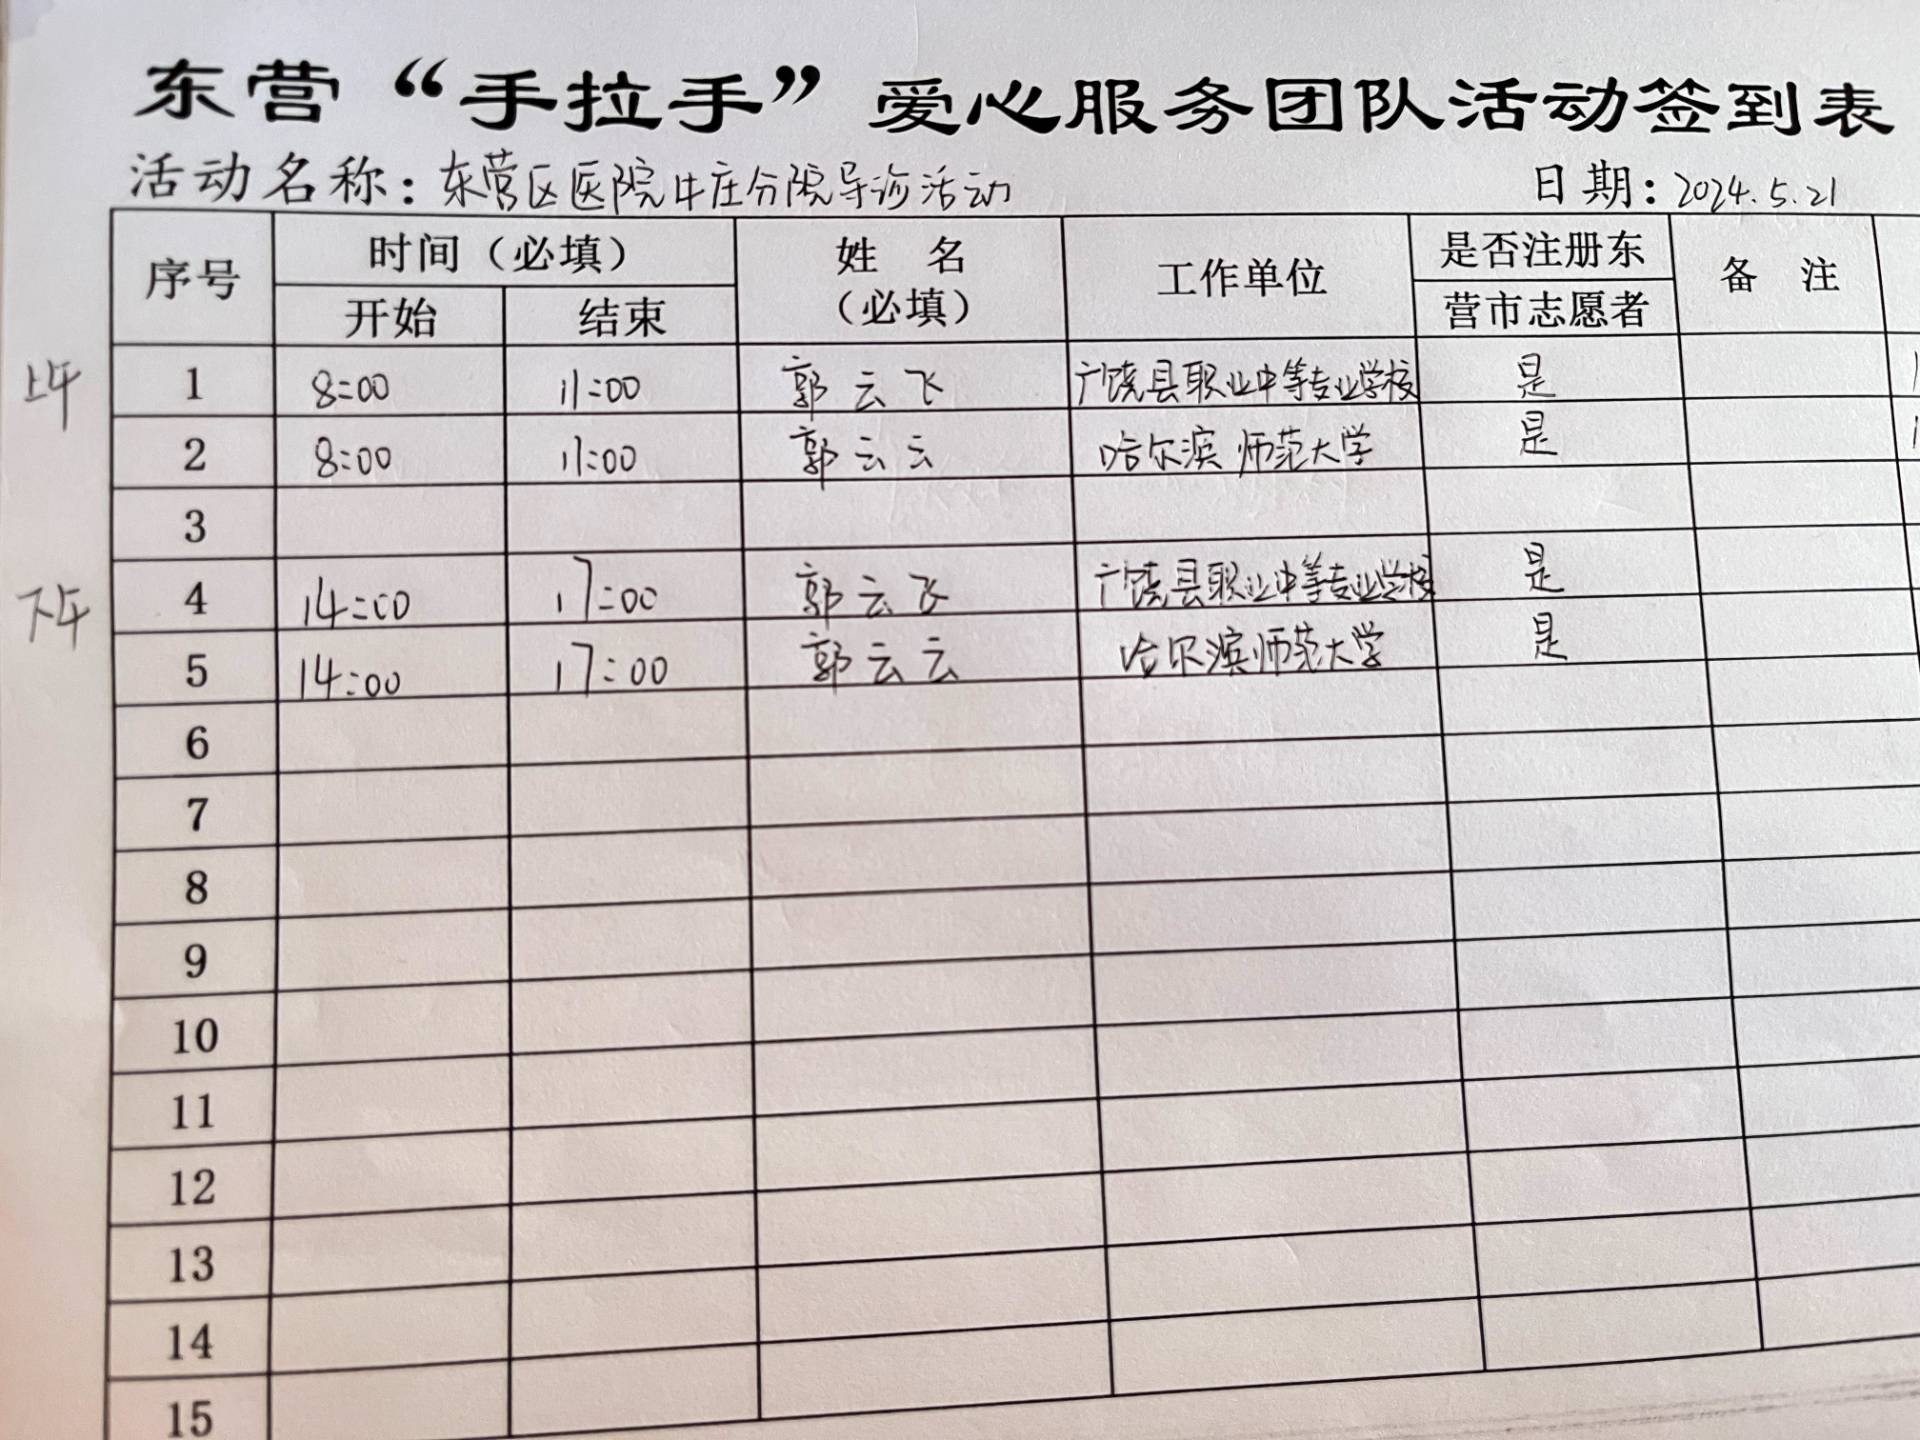 东营“手拉手”爱心服务团队活动签到表
活动名称：东营区医院牛庄分院导诊活动 日期：2024.5.21
序号 时间（必填） 姓 名（必填） 工作单位 是否注册东营市志愿者 备 注
开始 结束
上午 1 8:00 11:00 郭云飞 广饶县职业中等专业学校 是
2 8:00 11:00 郭云云 哈尔滨师范大学 是
3
下午 4 14:00 17:00 郭云飞 广饶县职业中等专业学校 是
5 14:00 17:00 郭云云 哈尔滨师范大学 是
6
7
8
9
10
11
12
13
14
15